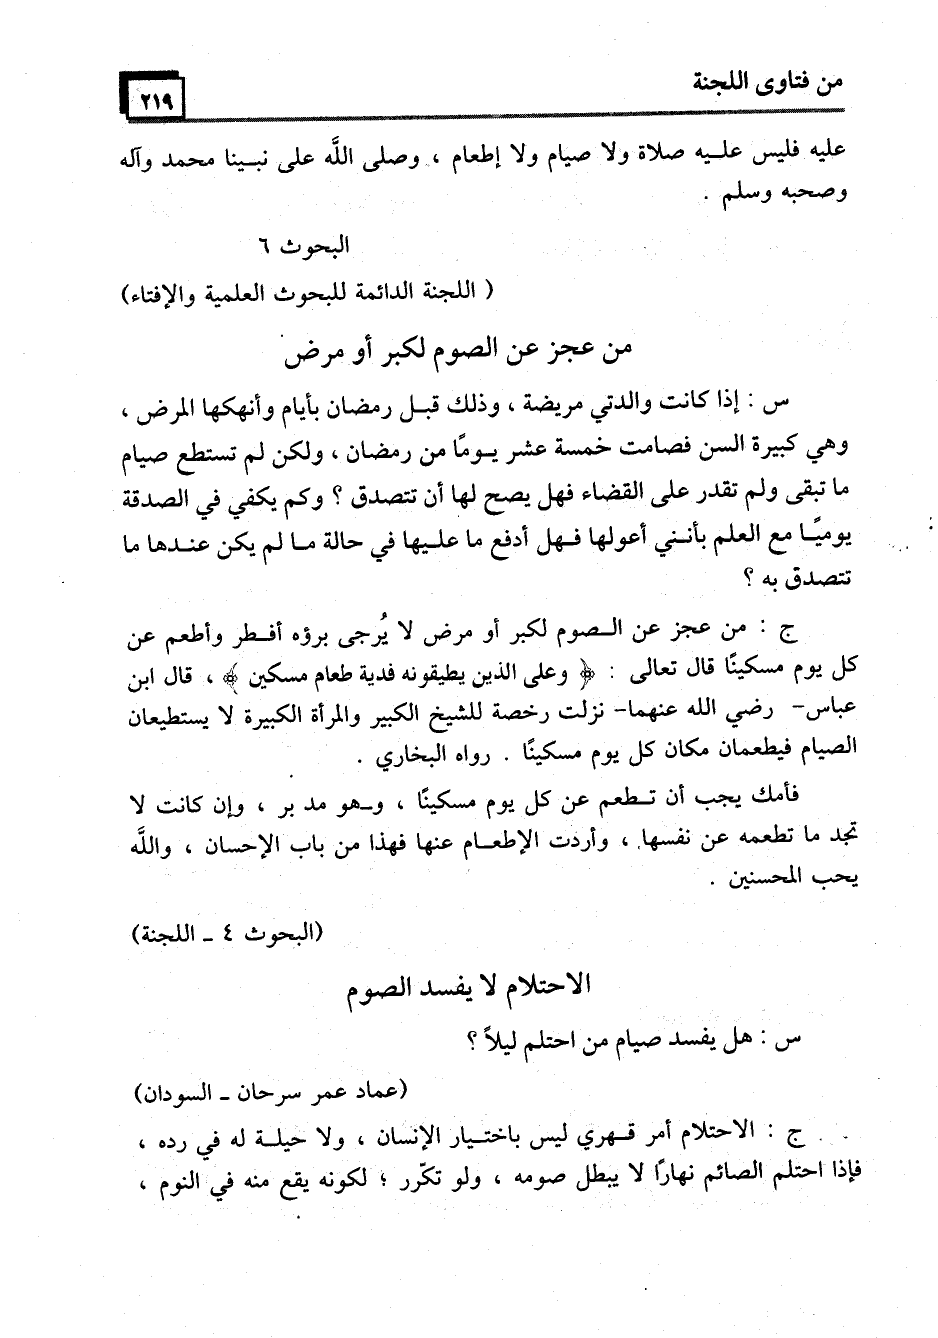 من فتاوى اللجنة
٢١٩
عليه فليس عليه صلاة ولا صيام ولا إطعام ، وصلى اللَّه على نبينا محمد وآله
وصحبه وسلم .
البحوث ٦
( اللجنة الدائمة للبحوث العلمية والإفتاء)
من عجز عن الصوم لكبر أو مرض
س : إذا كانت والدتي مريضة ، وذلك قبل رمضان بأيام وأنهكها المرض ،
وهي كبيرة السن فصامت خمسة عشر يومًا من رمضان ، ولكن لم تستطع صيام
ما تبقى ولم تقدر على القضاء فهل يصح لها أن تتصدق ؟ وكم يكفي في الصدقة
يوميًا مع العلم بأنني أعولها فهل أدفع ما عليها في حالة ما لم يكن عندها ما
تتصدق به ؟
ج : من عجز عن الصوم لكبر أو مرض لا يُرجى برؤه أفطر وأطعم عن
كل يوم مسكينًا قال تعالى : ﴿ وعلى الذين يطيقونه فدية طعام مسكين ﴾ ، قال ابن
عباس- رضي الله عنهما- نزلت رخصة للشيخ الكبير والمرأة الكبيرة لا يستطيعان
الصيام فيطعمان مكان كل يوم مسكينًا . رواه البخاري .
فأمك يجب أن تطعم عن كل يوم مسكينًا ، وهو مد بر ، وإن كانت لا
تجد ما تطعمه عن نفسها ، وأردت الإطعام عنها فهذا من باب الإحسان ، واللَّه
يحب المحسنين .
(البحوث ٤ ـ اللجنة)
الاحتلام لا يفسد الصوم
س : هل يفسد صيام من احتلم ليلاً ؟
(عماد عمر سرحان ـ السودان)
ج : الاحتلام أمر قهري ليس باختيار الإنسان ، ولا حيلة له في رده ،
فإذا احتلم الصائم نهارًا لا يبطل صومه ، ولو تكرّر ؛ لكونه يقع منه في النوم ،